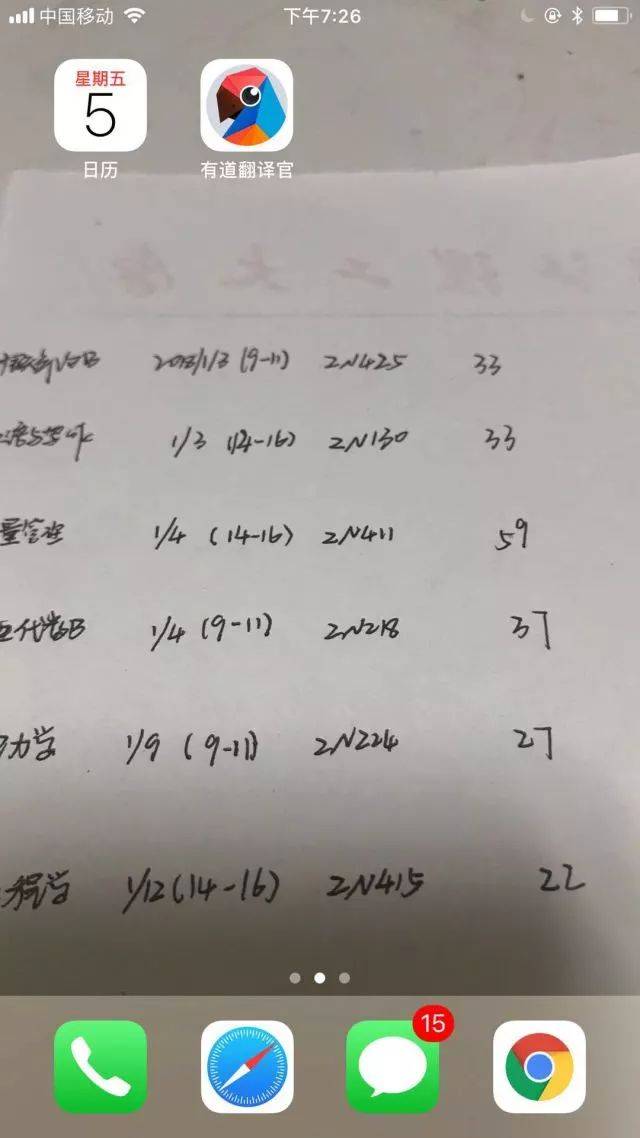 中国移动 下午7:26
星期五
5
日历 有道翻译官
2018/1/3 (9-11) 2N425 33
1/3 (14-16) 2N130 33
量管理 1/4 (14-16) 2N411 59
代数B 1/4 (9-11) 2N218 37
力学 1/9 (9-11) 2N224 27
程学 1/12 (14-16) 2N415 22
15